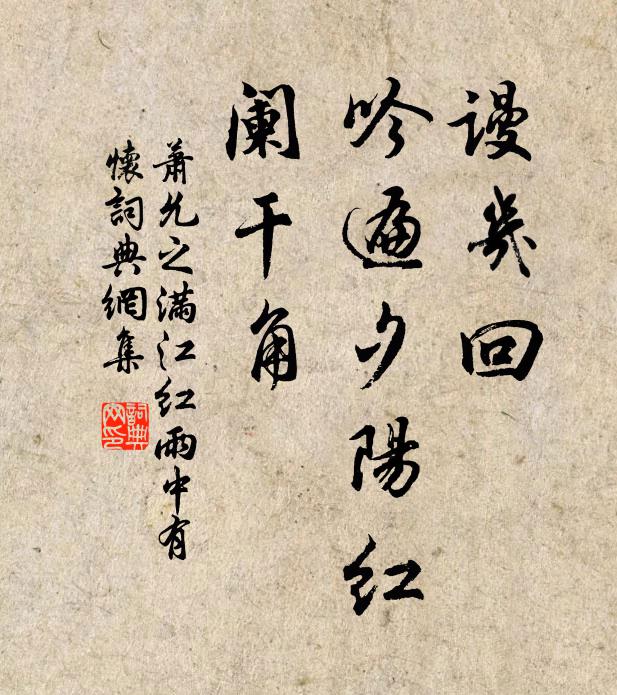 謾幾回
吟遍夕陽紅
闌干角
蕭允之滿江紅雨中有
懷詞典網集
詞典
网印